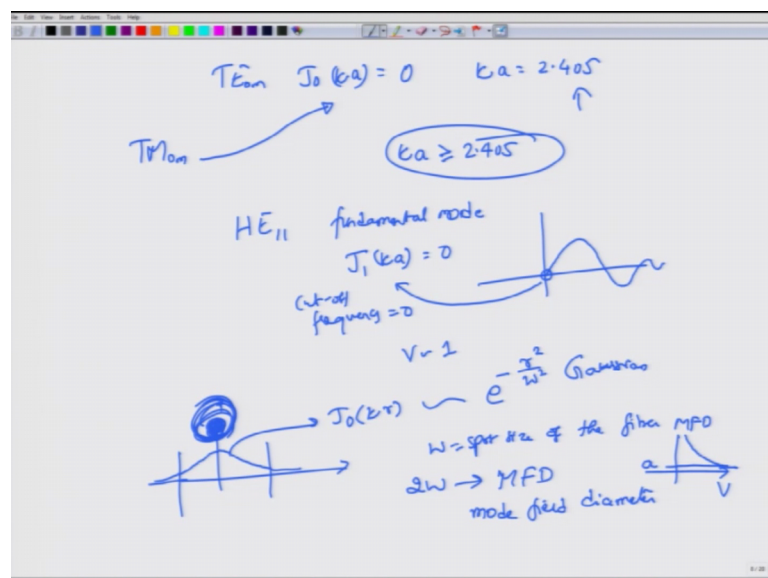 Edit View Insert Actions Tools Help
TE₀ₘ J₀(κa) = 0 κa = 2.405
TM₀ₘ
κa ≥ 2.405
HE₁₁ fundamental mode
J₁(κa) = 0
Cut-off
frequency = 0
V ~ 1
J₀(κr) ~ e^(-r²/w²) Gaussian
w = spot size of the fiber MFD
2w → MFD a V
mode field diameter